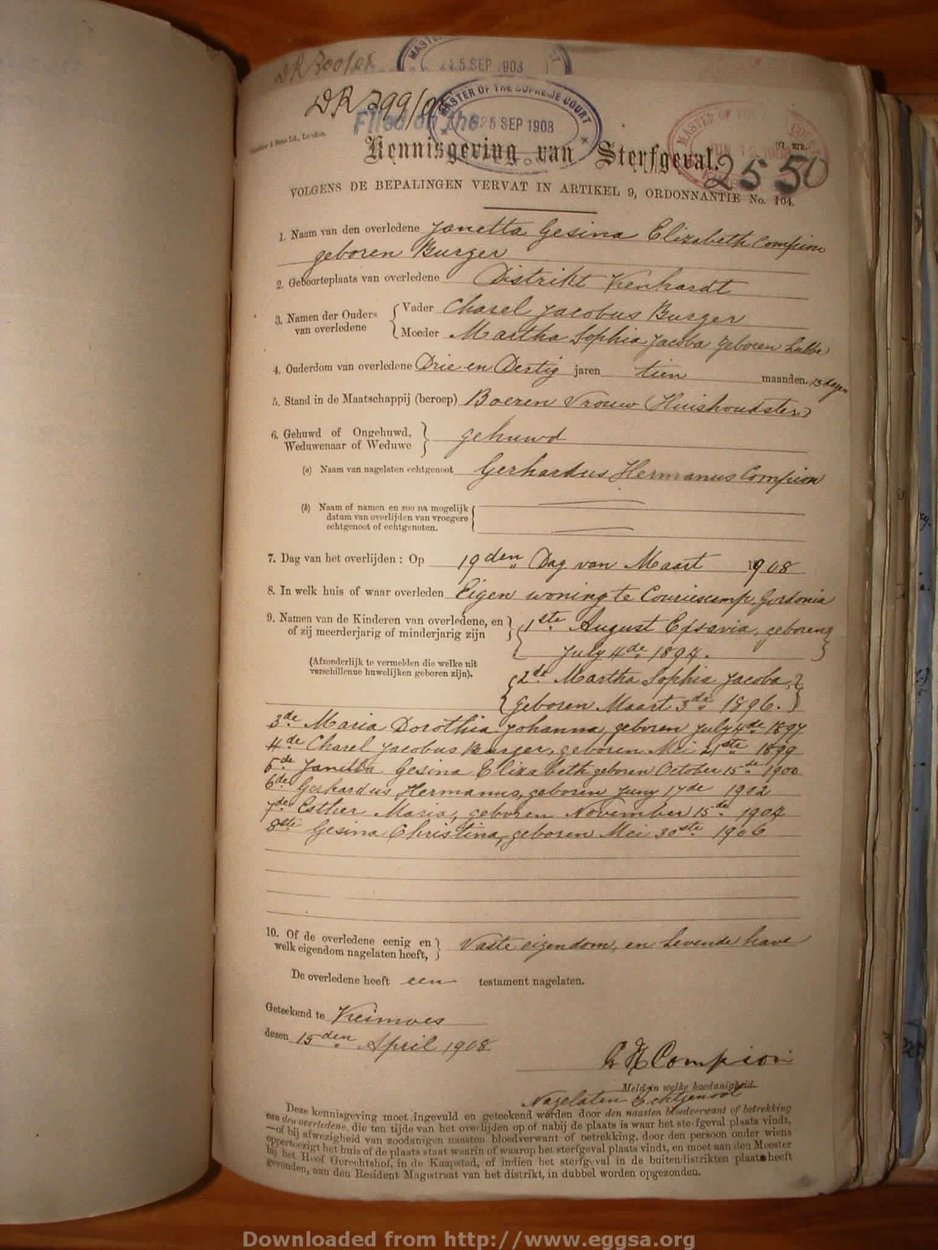 DR 300/08
25 SEP 1903
DR 299/08
MASTER OF THE SUPREME COURT
Filed on the 25 SEP 1908
Waterlow & Sons Ld., London.
Kennisgeving van Sterfgeval.
2550
VOLGENS DE BEPALINGEN VERVAT IN ARTIKEL 9, ORDONNANTIE No. 104.
1. Naam van den overledene Janetta Gesina Elizabeth Compion
geboren Burger
2. Geboorteplaats van overledene Distrikt Kenhardt
3. Namen der Ouders van overledene { Vader Charel Jacobus Burger
Moeder Martha Sophia Jacoba geboren Lubbe
4. Ouderdom van overledene Drie en Dertig jaren tien maanden. 13 dagen
5. Stand in de Maatschappij (beroep) Boeren Vrouw (Huishoudster)
6. Gehuwd of Ongehuwd, Weduwenaar of Weduwe } gehuwd
(a) Naam van nagelaten echtgenoot Gerhardus Hermanus Compion
(b) Naam of namen en zoo na mogelijk
datum van overlijden van vroegere
echtgenoot of echtgenoten.
7. Dag van het overlijden : Op 19den Dag van Maart 1908
8. In welk huis of waar overleden Eigen woning te Gordonia
9. Namen van de Kinderen van overledene, en of zij meerderjarig of minderjarig zijn
(Afzonderlijk te vermelden die welke uit
verschillenne huwelijken geboren zijn).
1ste August geboren
July 4de 1894.
2de Martha Sophia Jacoba
geboren Maart 3de 1896.
3de Maria Dorothia Johanna, geboren July 4de 1897
4de Charel Jacobus Burger, geboren Mei 21ste 1899
5de Janetta Gesina Elizabeth geboren October 15de 1900
6de Gerhardus Hermanus, geboren Juny 17de 1902
7de Esther Maria, geboren November 15de 1904
8ste Gesina Christina, geboren Mei 30ste 1906
10. Of de overledene eenig en welk eigendom nagelaten heeft, } Vaste eigendom, en Levende have
De overledene heeft een testament nagelaten.
Geteekend te Keimoes
dezen 15den April 1908
G H Compion
Meld in welke hoedanigheid.
Nagelaten Echtgenoot
Deze kennisgeving moet ingevuld en geteekend worden door den naasten bloedverwant of betrekking
van den overledene, die ten tijde van het overlijden op of nabij de plaats is waar het sterfgeval plaats vindt,
—of bij afwezigheid van zoodanigen naasten bloedverwant of betrekking, door den persoon onder wiens
oppertoezigt het huis of de plaats staat waarin of waarop het sterfgeval plaats vindt, en moet aan den Meester
bij het Hoof Gerechtshof, in de Kaapstad, of indien het sterfgeval in de buitendistrikten plaats heeft
gevonden, aan den Resident Magistraat van het distrikt, in dubbel worden opgezonden.
Downloaded from http://www.eggsa.org